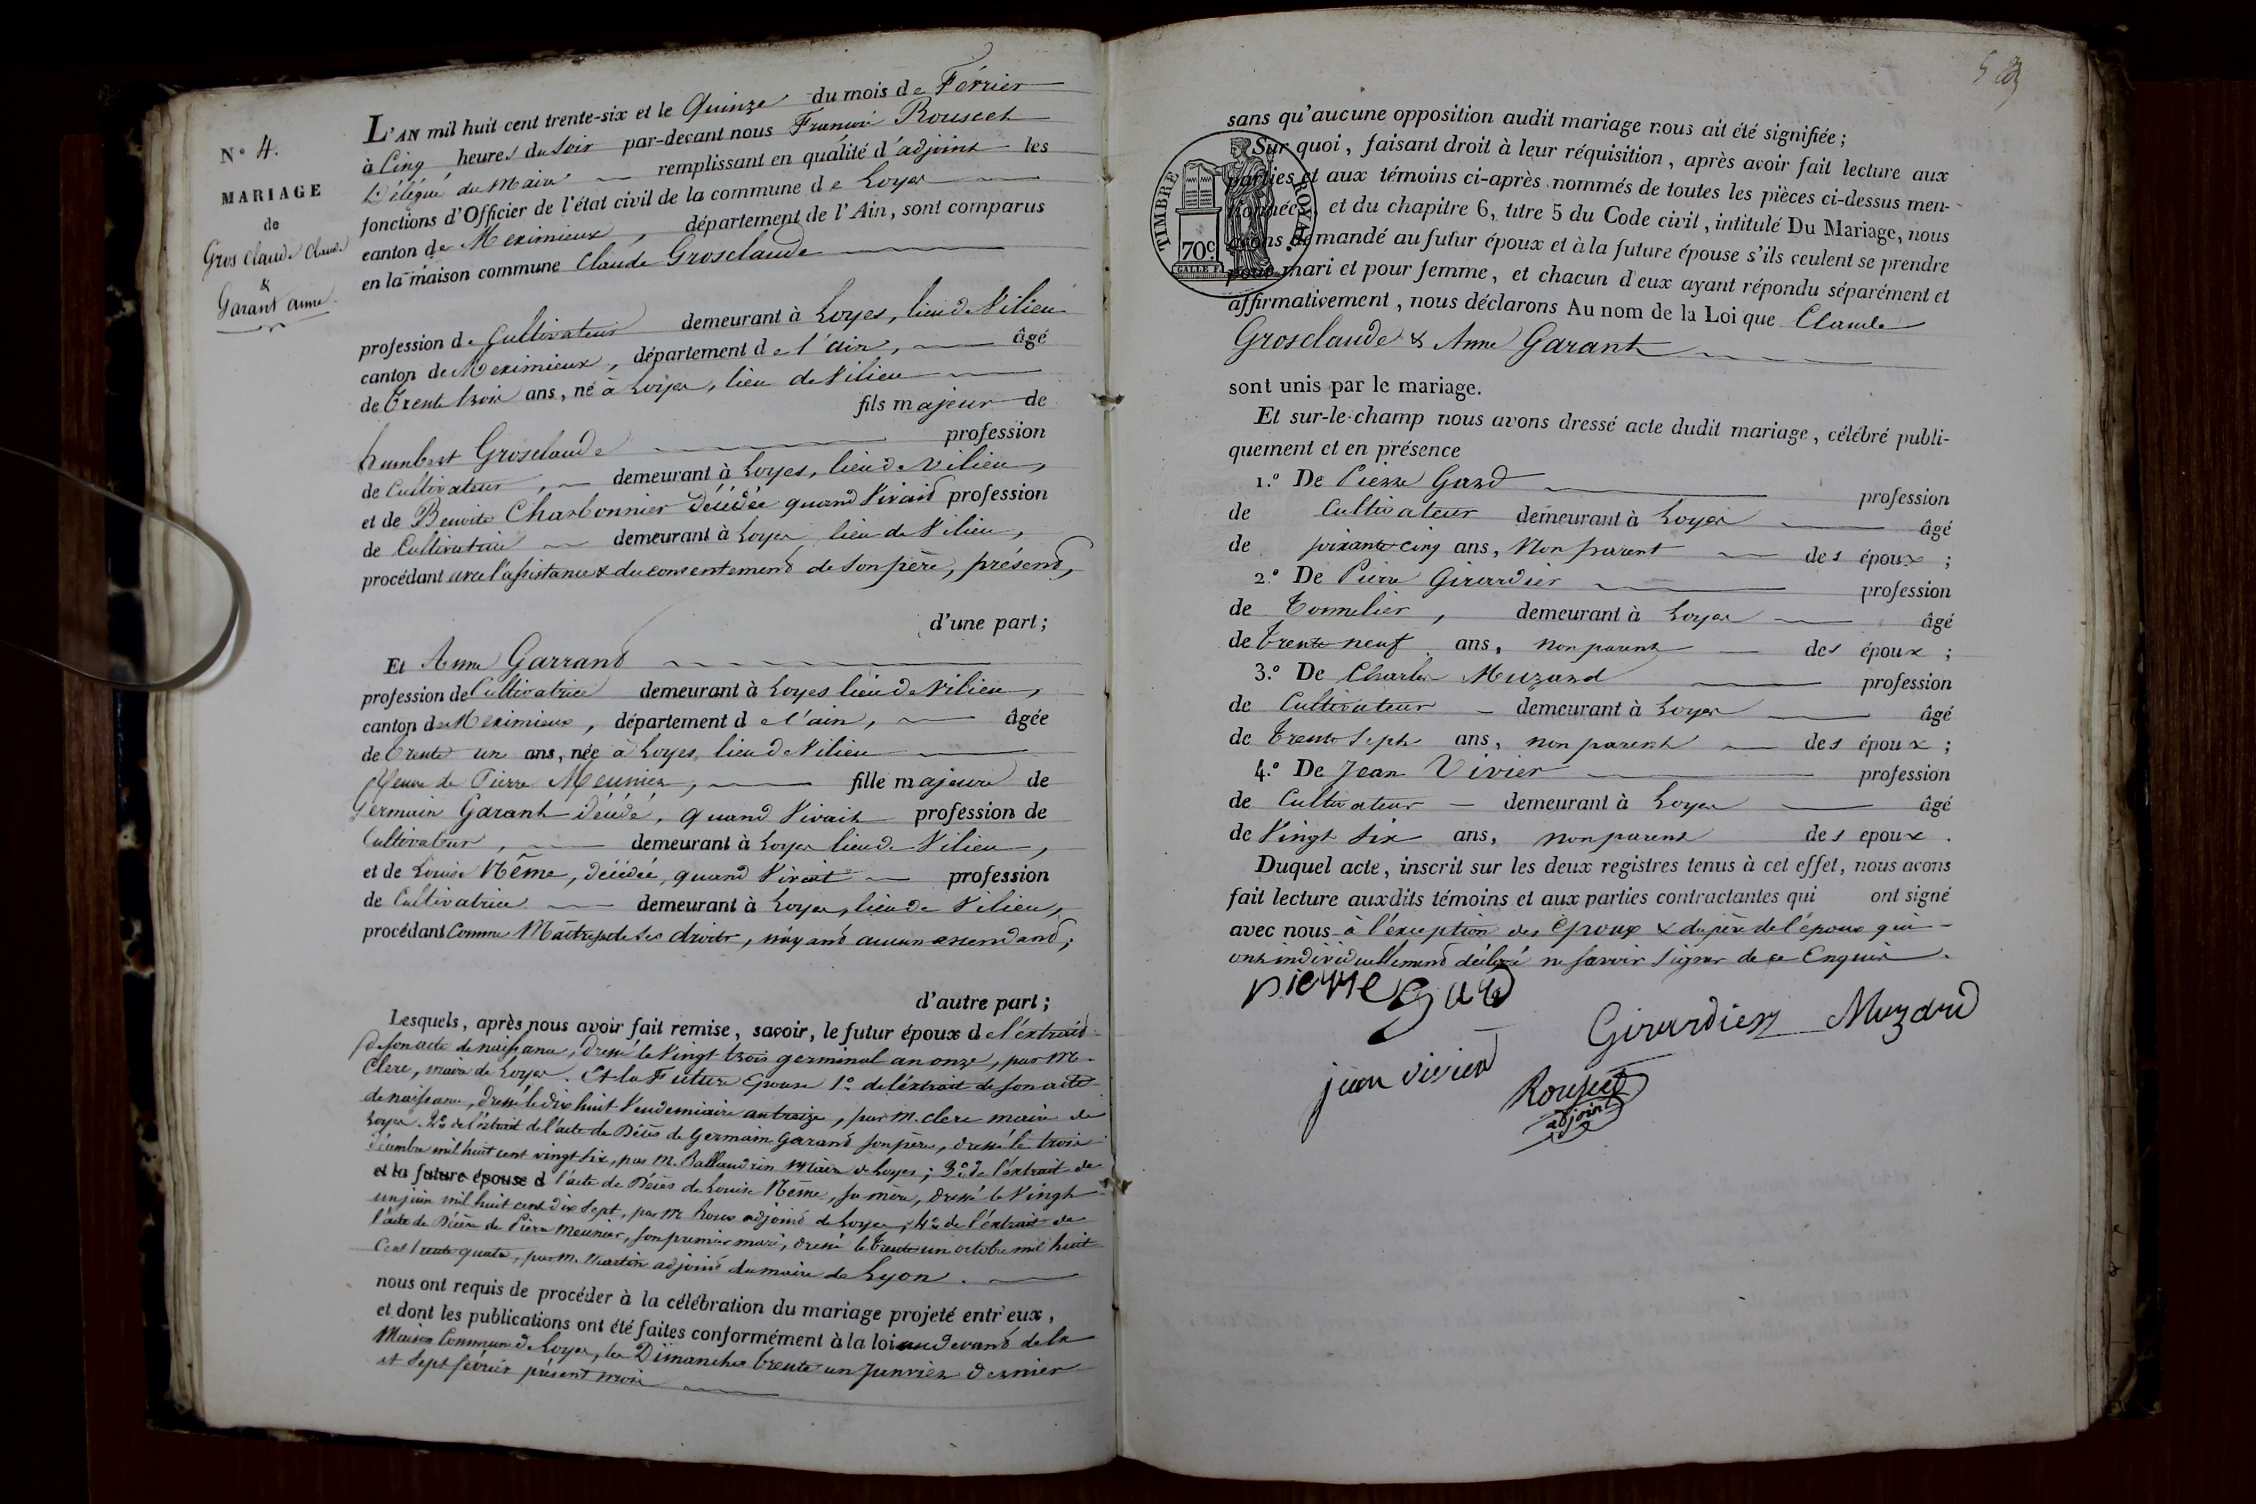 N° 4.
MARIAGE
de
Gros Claude Claude
&
Garant anne
L'AN mil huit cent trente-six et le Quinze du mois de Février
à Cinq heures du Soir par-devant nous François Rousset
Délégué du Maire remplissant en qualité d'adjoint les
fonctions d'Officier de l'état civil de la commune de Loyes
canton de Meximieux, département de l'Ain, sont comparus
en la maison commune Claude Grosclaude
profession de Cultivateur demeurant à Loyes, lieu de Vilieu
canton de Meximieux, département de l'ain, âgé
de trente trois ans, né à Loyes, lieu de Vilieu
fils majeur de
humbert Grosclaude profession
de Cultivateur, demeurant à Loyes, lieu de Vilieu,
et de Benoite Charbonnier décédée quand Vivait profession
de Cultivatrice demeurant à Loyes lieu de Vilieu,
procédant avec l'assistance & du consentement de son père, présent,
d'une part;
Et Anne Garrand
profession de Cultivatrice demeurant à Loyes lieu de Vilieu,
canton de Meximieux, département de l'ain, âgée
de trente un ans, née à Loyes, lieu de Vilieu
Veuve de Pierre Meunier, fille majeure de
Germain Garant décédé, quand Vivait profession de
Cultivateur, demeurant à Loyes lieu de Vilieu,
et de Louise Nême, décédée, quand Vivait profession
de Cultivatrice demeurant à Loyes, lieu de Vilieu,
procédant Comme Maîtresse de ses droits, n'ayant aucun ascendant;
d'autre part;
Lesquels, après nous avoir fait remise, savoir, le futur époux de l'extrait
de son acte de naissance, dressé le Vingt trois germinal an onze, par M.
Clere, maire de Loyes. Et la Future Epouse 1° de l'extrait de son acte
de naissance, dressé le dix huit Vendemiaire an treize, par M. Clere maire de
Loyes. 2° de l'extrait de l'acte de Décès de Germain Garand son père, dressé le trois
décembre mil huit cent vingt six, par M. Ballandrin Maire de Loyes; 3° de l'extrait de
et la future épouse d l'acte de Décès de Louise Nême, sa mère, dressé le Vingt
un juin mil huit cent dix sept, par M. Roux adjoint de Loyes, 4° de l'extrait de
l'acte de Décès de Pierre Meunier, son premier mari, dressé le trente un octobre mil huit
Cent trente quatre, par M. Martin adjoint du maire de Lyon.
nous ont requis de procéder à la célébration du mariage projeté entr'eux,
et dont les publications ont été faites conformément à la loi au devant de la
Maison Commune de Loyes, les Dimanches trente un Janvier dernier
et Sept février présent mois
TIMBRE ROYAL
70c
sans qu'aucune opposition audit mariage nous ait été signifiée;
Sur quoi, faisant droit à leur réquisition, après avoir fait lecture aux
parties et aux témoins ci-après nommés de toutes les pièces ci-dessus men-
tionnées, et du chapitre 6, titre 5 du Code civil, intitulé Du Mariage, nous
avons demandé au futur époux et à la future épouse s'ils veulent se prendre
pour mari et pour femme, et chacun d'eux ayant répondu séparément et
affirmativement, nous déclarons Au nom de la Loi que Claude
Grosclaude & Anne Garant
sont unis par le mariage.
Et sur-le-champ nous avons dressé acte dudit mariage, célébré publi-
quement et en présence
1.° De Pierre Gard profession
de Cultivateur demeurant à Loyes âgé
de soixante cinq ans, Non parent des époux;
2.° De Pierre Girardier profession
de Tonnelier, demeurant à Loyes âgé
de trente neuf ans, non parent des époux;
3.° De Charles Muzard profession
de Cultivateur demeurant à Loyes âgé
de trente Sept ans, non parent des époux;
4.° De Jean Vivier profession
de Cultivateur demeurant à Loyes âgé
de Vingt Six ans, non parent des epoux.
Duquel acte, inscrit sur les deux registres tenus à cet effet, nous avons
fait lecture auxdits témoins et aux parties contractantes qui ont signé
avec nous à l'éxception des Epoux & du père de l'époux qui
ont individuellement déclaré ne savoir signer de ce Enquis.
pierre gard
Girardier Muzard
jean vivier
Rousset
adjoint